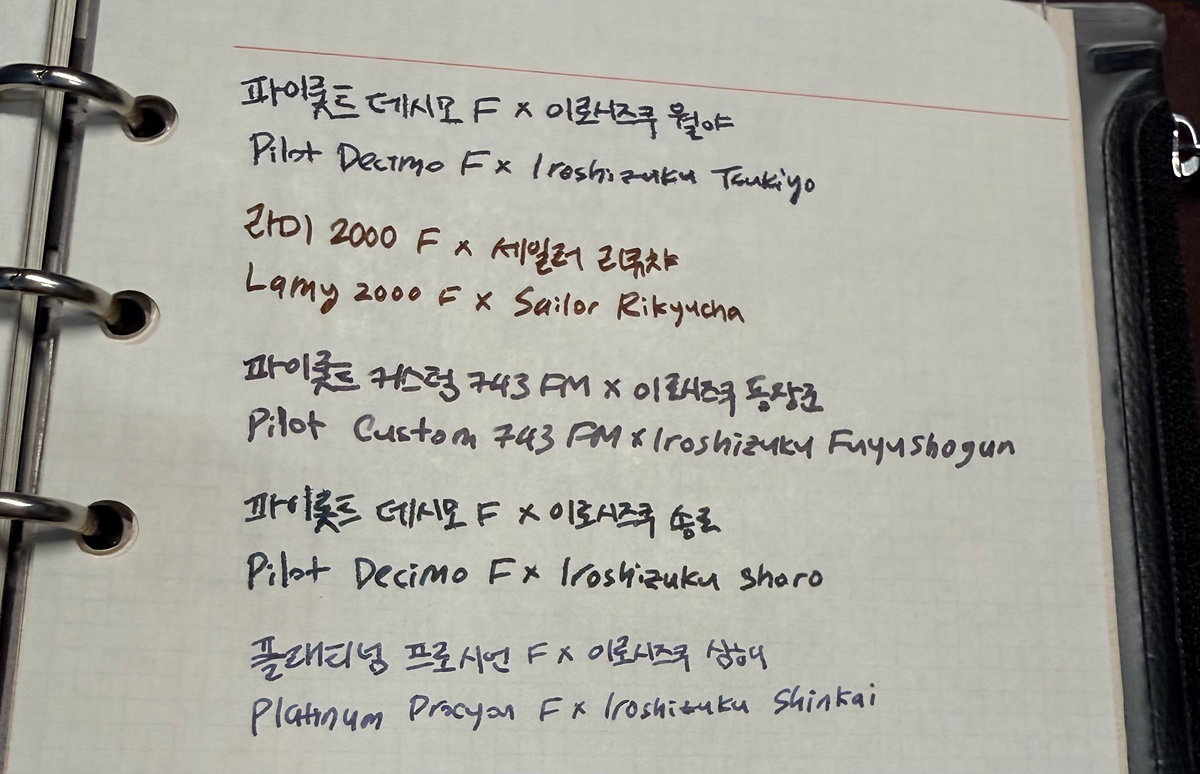 파이롯트 데시모 F × 이로시즈쿠 월야
Pilot Decimo F × Iroshizuku Tsukiyo
라미 2000 F × 세일러 리큐챠
Lamy 2000 F × Sailor Rikyucha
파이롯트 커스텀 743 FM × 이로시즈쿠 동장군
Pilot Custom 743 FM × Iroshizuku Fuyushogun
파이롯트 데시모 F × 이로시즈쿠 송로
Pilot Decimo F × Iroshizuku shoro
플래티넘 프로시언 F × 이로시즈쿠 심해
Platinum Procyon F × Iroshizuku Shinkai